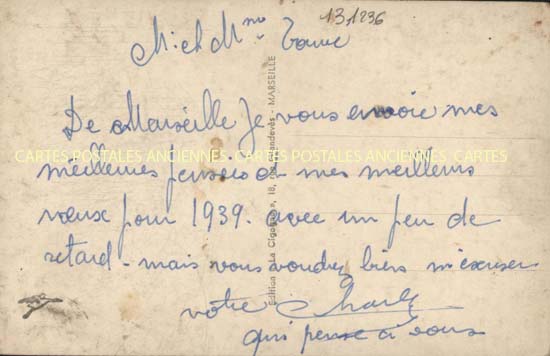 131236
De Marseille je vous envoie mes
CARTES POSTALES ANCIENNES CARTES POSTALES ANCIENNES CARTES
meilleures pensées et mes meilleurs
vœux pour 1939. avec un peu de
retard - mais vous voudrez bien m'excuser
votre Charly
qui pense à vous
Edition La Cigogne, 18, rue - MARSEILLE